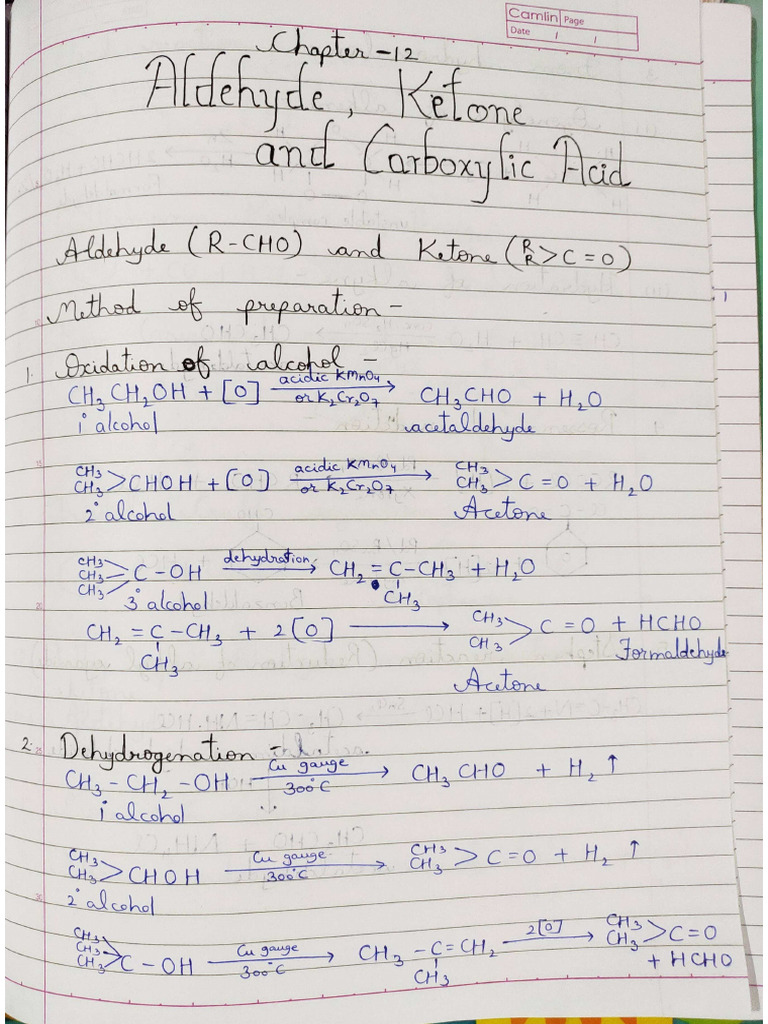 Camlin Page
Date / /
Chapter - 12
Aldehyde, Ketone
and Carboxylic Acid
Aldehyde (R-CHO) and Ketone (R R > C = O)
Method of preparation -
1. Oxidation of alcohol -
CH3CH2OH + [O] acidic KMnO4 or K2Cr2O7 → CH3CHO + H2O
1° alcohol acetaldehyde
CH3 CH3 > CHOH + [O] acidic KMnO4 or K2Cr2O7 → CH3 CH3 > C = O + H2O
2° alcohol Acetone
CH3 CH3 CH3 > C - OH dehydration → CH2 = C - CH3 + H2O
3° alcohol CH3
CH2 = C - CH3 + 2[O] → CH3 CH3 > C = O + HCHO
CH3 Formaldehyde
Acetone
2. Dehydrogenation -
CH3 - CH2 - OH Cu gauge 300°C → CH3 CHO + H2 ↑
1° alcohol
CH3 CH3 > CHOH Cu gauge 300°C → CH3 CH3 > C = O + H2 ↑
2° alcohol
CH3 CH3 CH3 > C - OH Cu gauge 300°C → CH3 - C = CH2 2[O] → CH3 CH3 > C = O
CH3 + HCHO